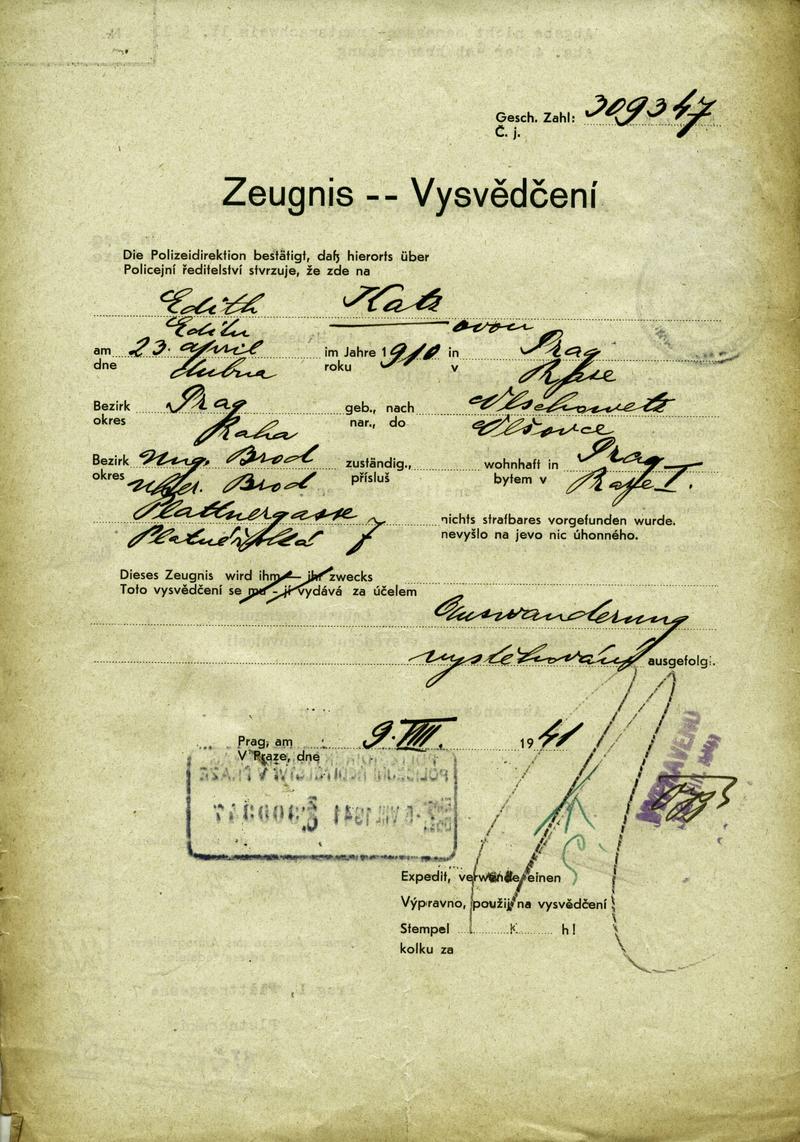 Gesch. Zahl: 309347
Č. j.
Zeugnis -- Vysvědčení
Die Polizeidirektion bestätigt, daß hierorts über
Policejní ředitelství stvrzuje, že zde na
Edith Katz
Editu ovou
am 23. april im Jahre 1910 in Prag
dne dubna roku v Praze
Bezirk Prag geb., nach Wlschowetz
okres Praha nar., do Vlšovce
Bezirk Ung. Brod zuständig., wohnhaft in Prag
okres Uher. Brod přísluš bytem v Praze I.
Plattnergasse nichts strafbares vorgefunden wurde.
Platnéřská 7 nevyšlo na jevo nic úhonného.
Dieses Zeugnis wird ihm — ihr zwecks
Toto vysvědčení se mu - jí vydává za účelem
Auswanderung
vystěhování ausgefolgt.
Prag, am 9. VIII. 1941
V Praze, dne
Expedit, verwende einen
Výpravno, použij na vysvědčení
Stempel K h!
kolku za